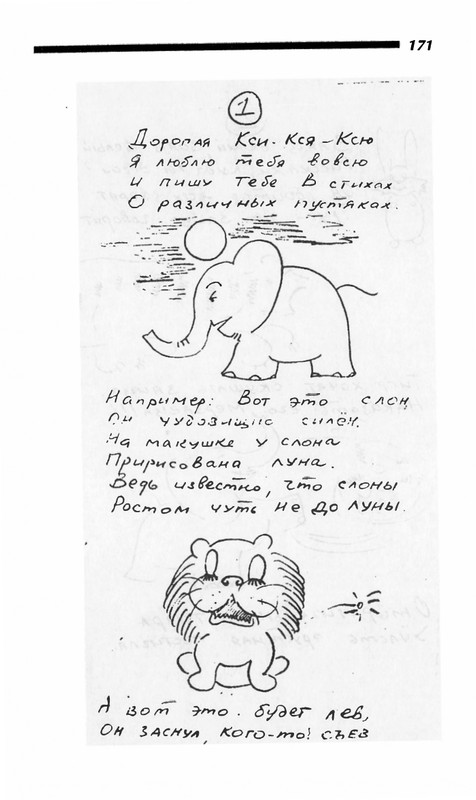 171
1
Дорогая Кси-Кся-Ксю
Я люблю тебя вовсю
И пишу тебе в стихах
О различных пустяках.
Например: Вот это слон
Он чудовищно силён.
На макушке у слона
Пририсована луна.
Ведь известно, что слоны
Ростом чуть не до луны.
А вот это будет лев,
Он заснул, кого-то съев